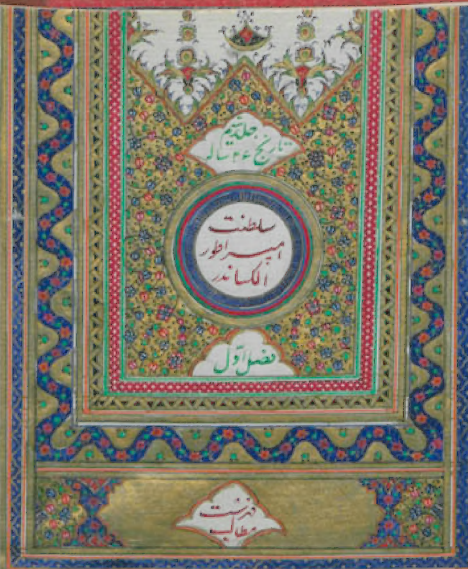 جلد دویم
تاریخ ۲۶ ساله
سلطنت
امپراطور
الکساندر
فصل اول
فهرست
مطالب